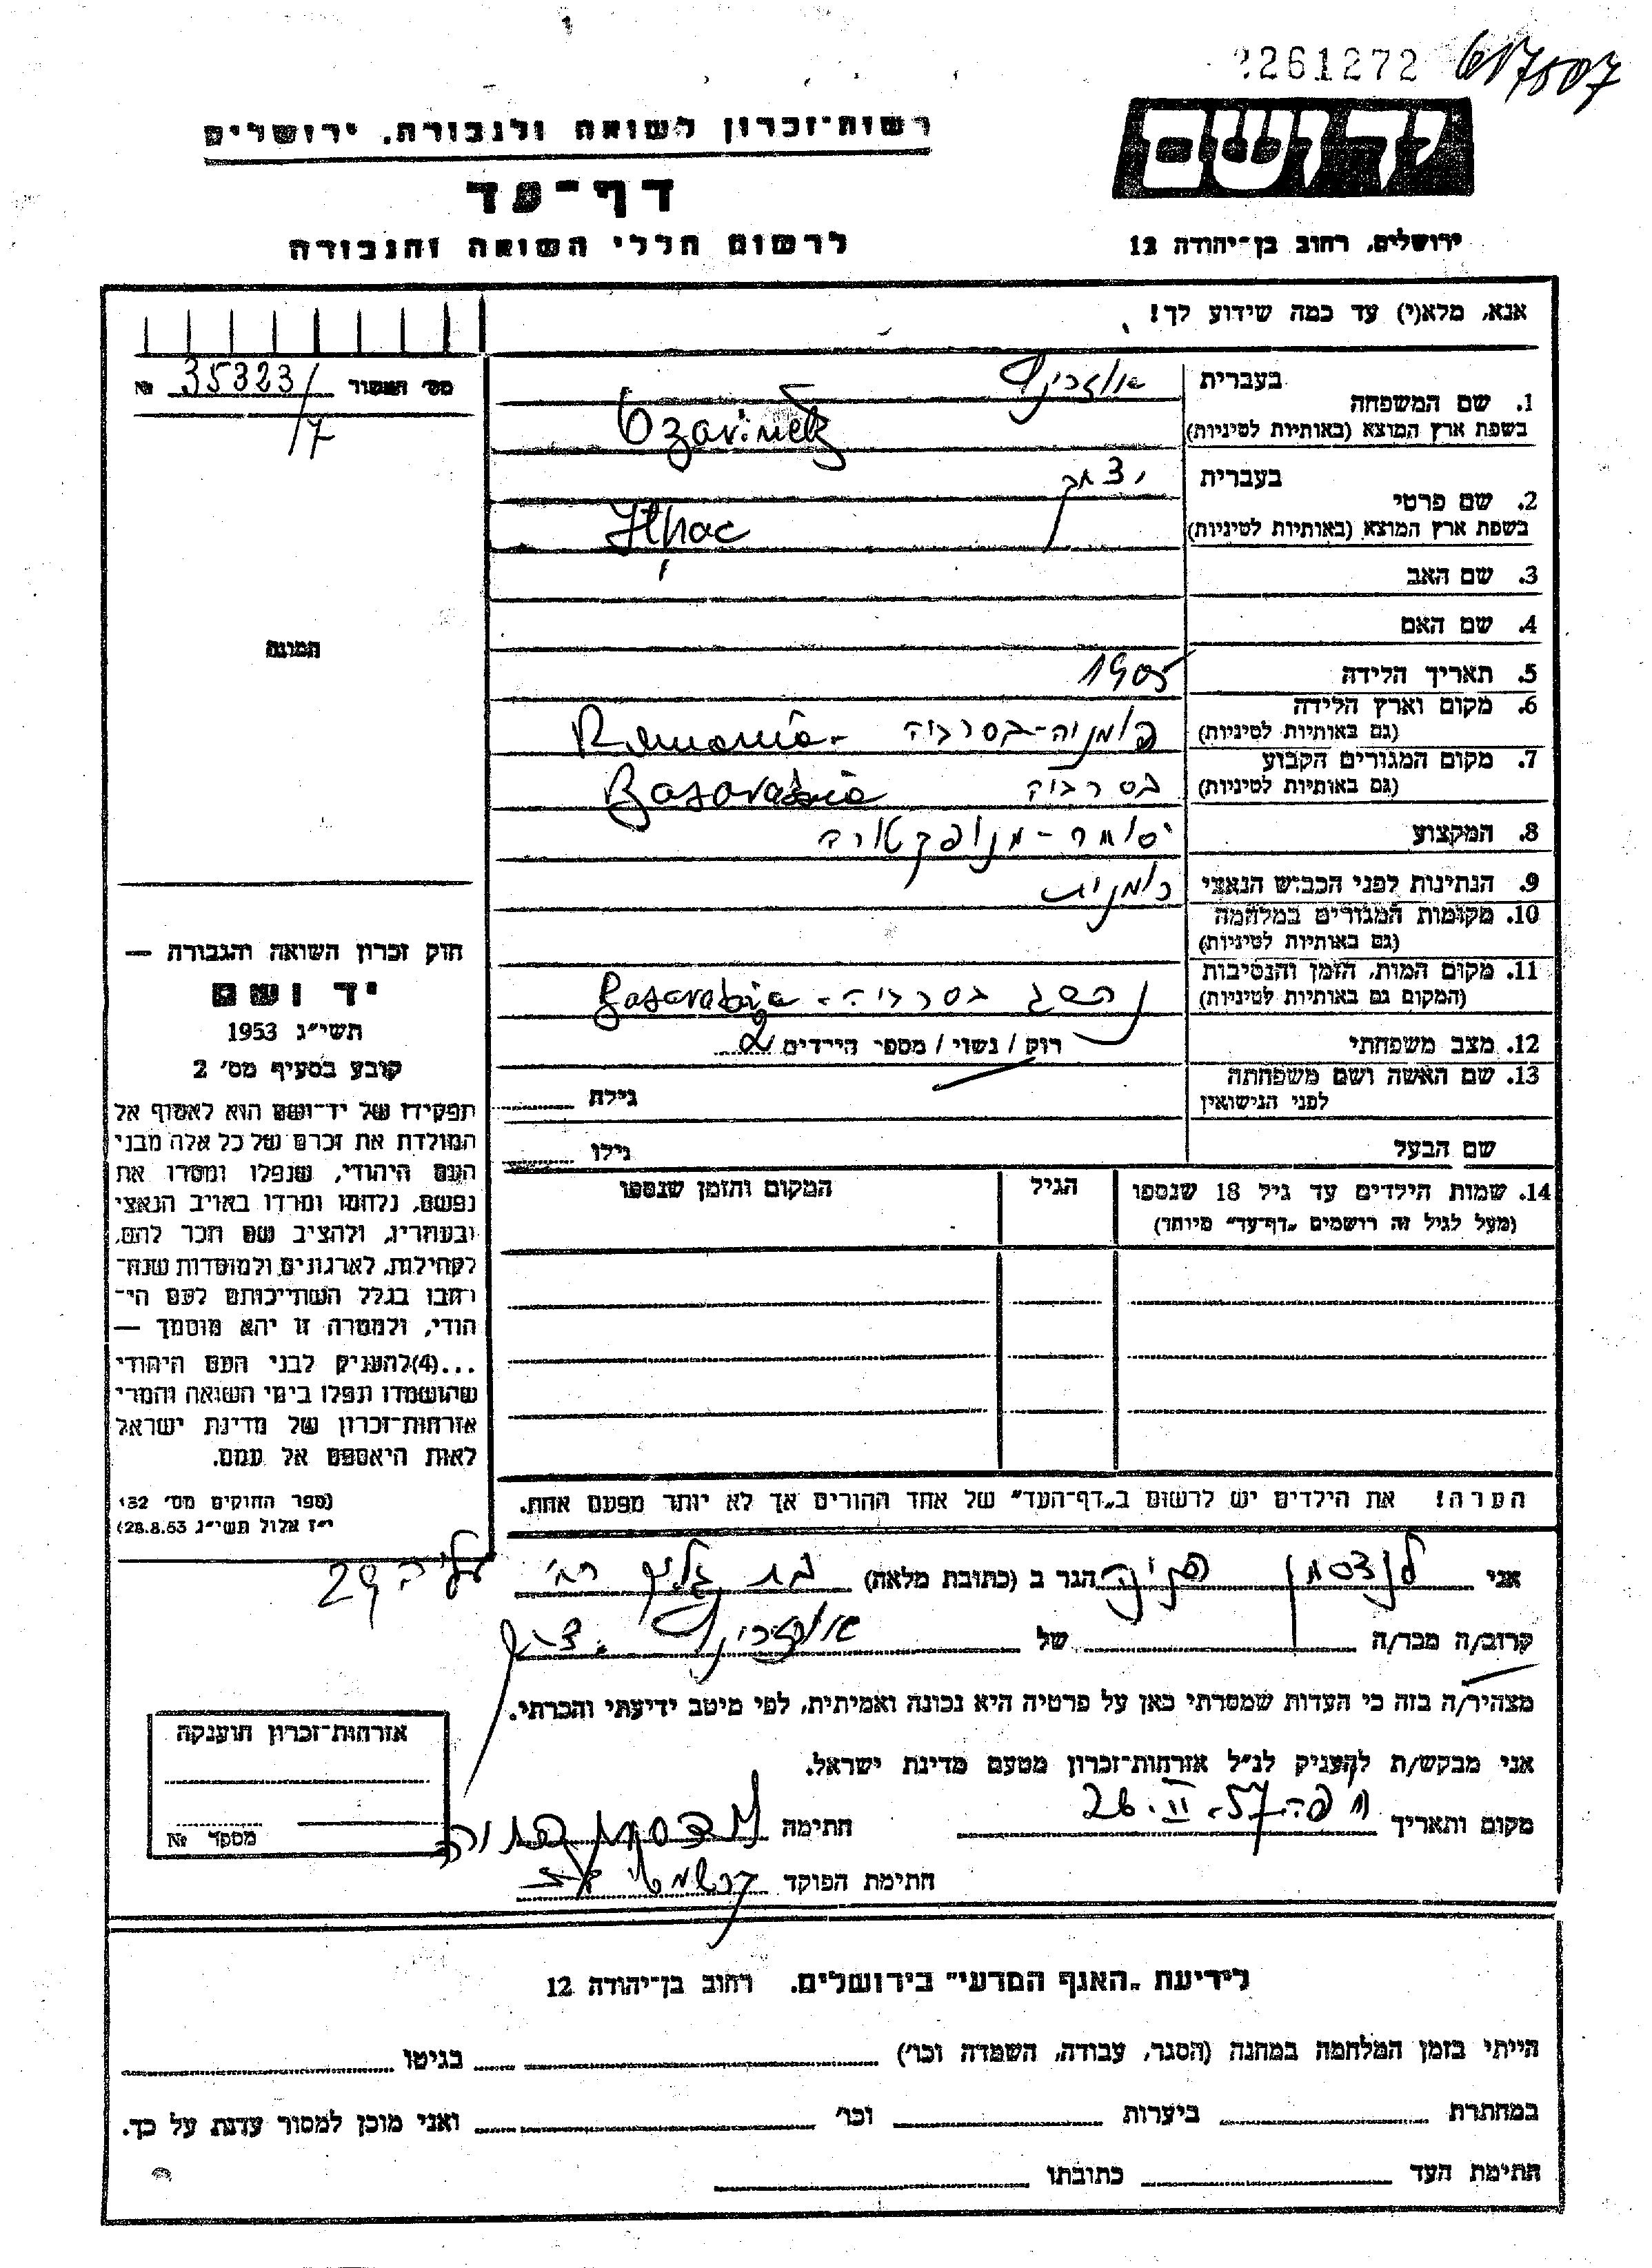 2261272 617507
רשות־זכרון לשואה ולגבורה, ירושלים
יד ושם
דף־עד
ירושלים, רחוב בן־יהודה 12
לרשום חללי השואה והגבורה
אנא, מלא(י) עד כמה שידוע לך!
מס׳ האשור 35323/7 №
1. שם המשפחה
בעברית
בשפת ארץ המוצא (באותיות לטיניות)
2. שם פרטי
בעברית יצחק
בשפת ארץ המוצא (באותיות לטיניות)
3. שם האב
4. שם האם
5. תאריך הלידה 1905
6. מקום וארץ הלידה רומניה-בסרביה Romania-
(גם באותיות לטיניות)
7. מקום המגורים הקבוע בסרביה Basarabia
(גם באותיות לטיניות)
8. המקצוע סוחר-מנופקטורה
9. הנתינות לפני הכבוש הנאצי רומנית
10. מקומות המגורים במלחמה
(גם באותיות לטיניות)
11. מקום המות, הזמן והנסיבות נהרג בסרביה- Basarabia
(המקום גם באותיות לטיניות)
12. מצב משפחתי רוק / נשוי / מספר הילדים 2
13. שם האשה ושם משפחתה
לפני הנישואין
גילה
שם הבעל גילו
14. שמות הילדים עד גיל 18 שנספו
(מעל לגיל זה רושמים „דף־עד" מיוחד)
הגיל
המקום והזמן שנספו
הערה! את הילדים יש לרשום ב„דף־העד" של אחד ההורים אך לא יותר מפעם אחת.
תמונה
חוק זכרון השואה והגבורה —
יד ושם
תשי״ג 1953
קובע בסעיף מס׳ 2
תפקידו של יד־ושם הוא לאסוף אל
המולדת את זכרם של כל אלה מבני
העם היהודי, שנפלו ומסרו את
נפשם, נלחמו ומרדו באויב הנאצי
ובעוזריו, ולהציב שם וזכר להם,
לקהילות, לארגונים ולמוסדות שנח־
רבו בגלל השתייכותם לעם הי־
הודי, ולמטרה זו יהא מוסמך —
...(4)להעניק לבני העם היהודי
שהושמדו ונפלו בימי השואה והמרי
אזרחות־זכרון של מדינת ישראל
לאות היאספם אל עמם.
(ספר החוקים מס׳ 132
י״ז אלול תשי״ג 28.8.53)
אני לנדסמן פניה הגר ב (כתובת מלאה) בת גלים רח׳ 29
קרוב/ה מכר/ה של יצחק
מצהיר/ה בזה כי העדות שמסרתי כאן על פרטיה היא נכונה ואמיתית, לפי מיטב ידיעתי והכרתי.
אני מבקש/ת להעניק לנ״ל אזרחות־זכרון מטעם מדינת ישראל.
מקום ותאריך חיפה 26.II.57 חתימה לנדסמן פניה
חתימת הפוקד
אזרחות־זכרון הוענקה
מספר №
לידיעת „האגף המדעי" בירושלים, רחוב בן־יהודה 12
הייתי בזמן המלחמה במחנה (הסגר, עבודה, השמדה וכו׳) בגיטו
במחתרת ביערות וכו׳ ואני מוכן למסור עדות על כך.
חתימת העד כתובתו